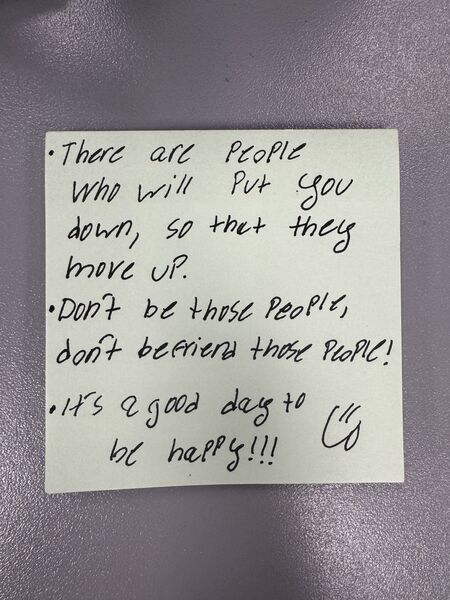 • There are people
who will put you
down, so that they
move up.
• Don't be those people,
don't befriend those people!
• It's a good day to
be happy!!!